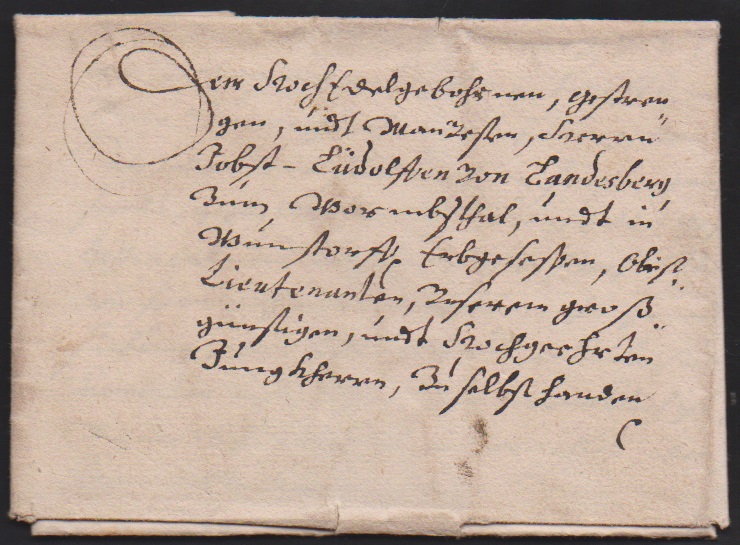 Dem HochEdelgebohrnen, gestren
gen, undt Manvesten, Herrn
Jobst-Lüdolffen von Landesberg
Zum Wormbsthal, undt in
Wunstorff, Erbgeseßen, Obrist
Lieutenanten, Unserem groß
günstigen, undt Hochgeehrten
Jungkherrn, Zu selbst handen